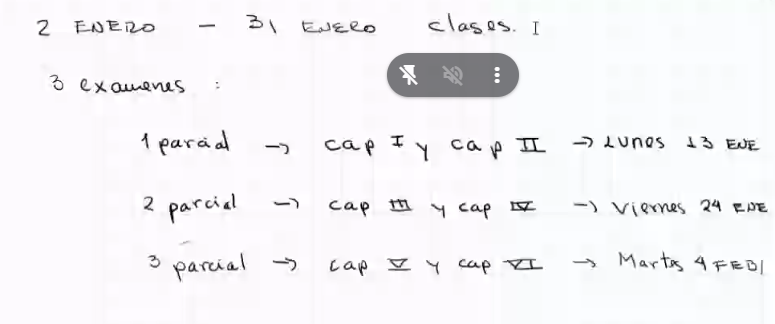 2 ENERO - 31 ENERO clases. I
3 examenes :
1 parcial → cap I y cap II → Lunes 13 ENE
2 parcial → cap III y cap IV → Viernes 24 ENE
3 parcial → cap V y cap VI → Martes 4 FEB